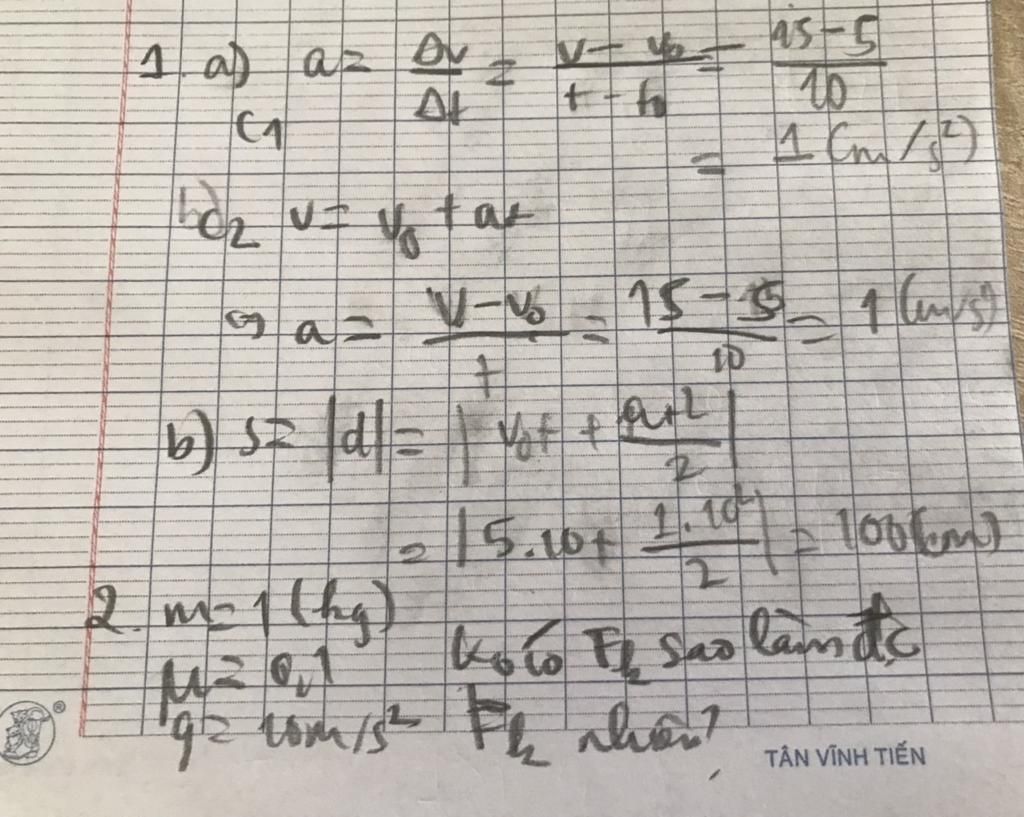 1. a) a = Δv/Δt = (v - v₀)/(t - t₀) = (15 - 5)/10
C1
= 1 (m/s²)
C2 v = v₀ + at
a = (v - v₀)/t = (15 - 5)/10 = 1 (m/s²)
b) s = |d| = |v₀t + at²/2|
= |5.10 + 1.10²/2| = 100 (m)
2. m = 1 (kg)
μ = 0,1 ko có Fk sao làm đc
g = 10m/s² Fk nhân?
® TÂN VĨNH TIẾN